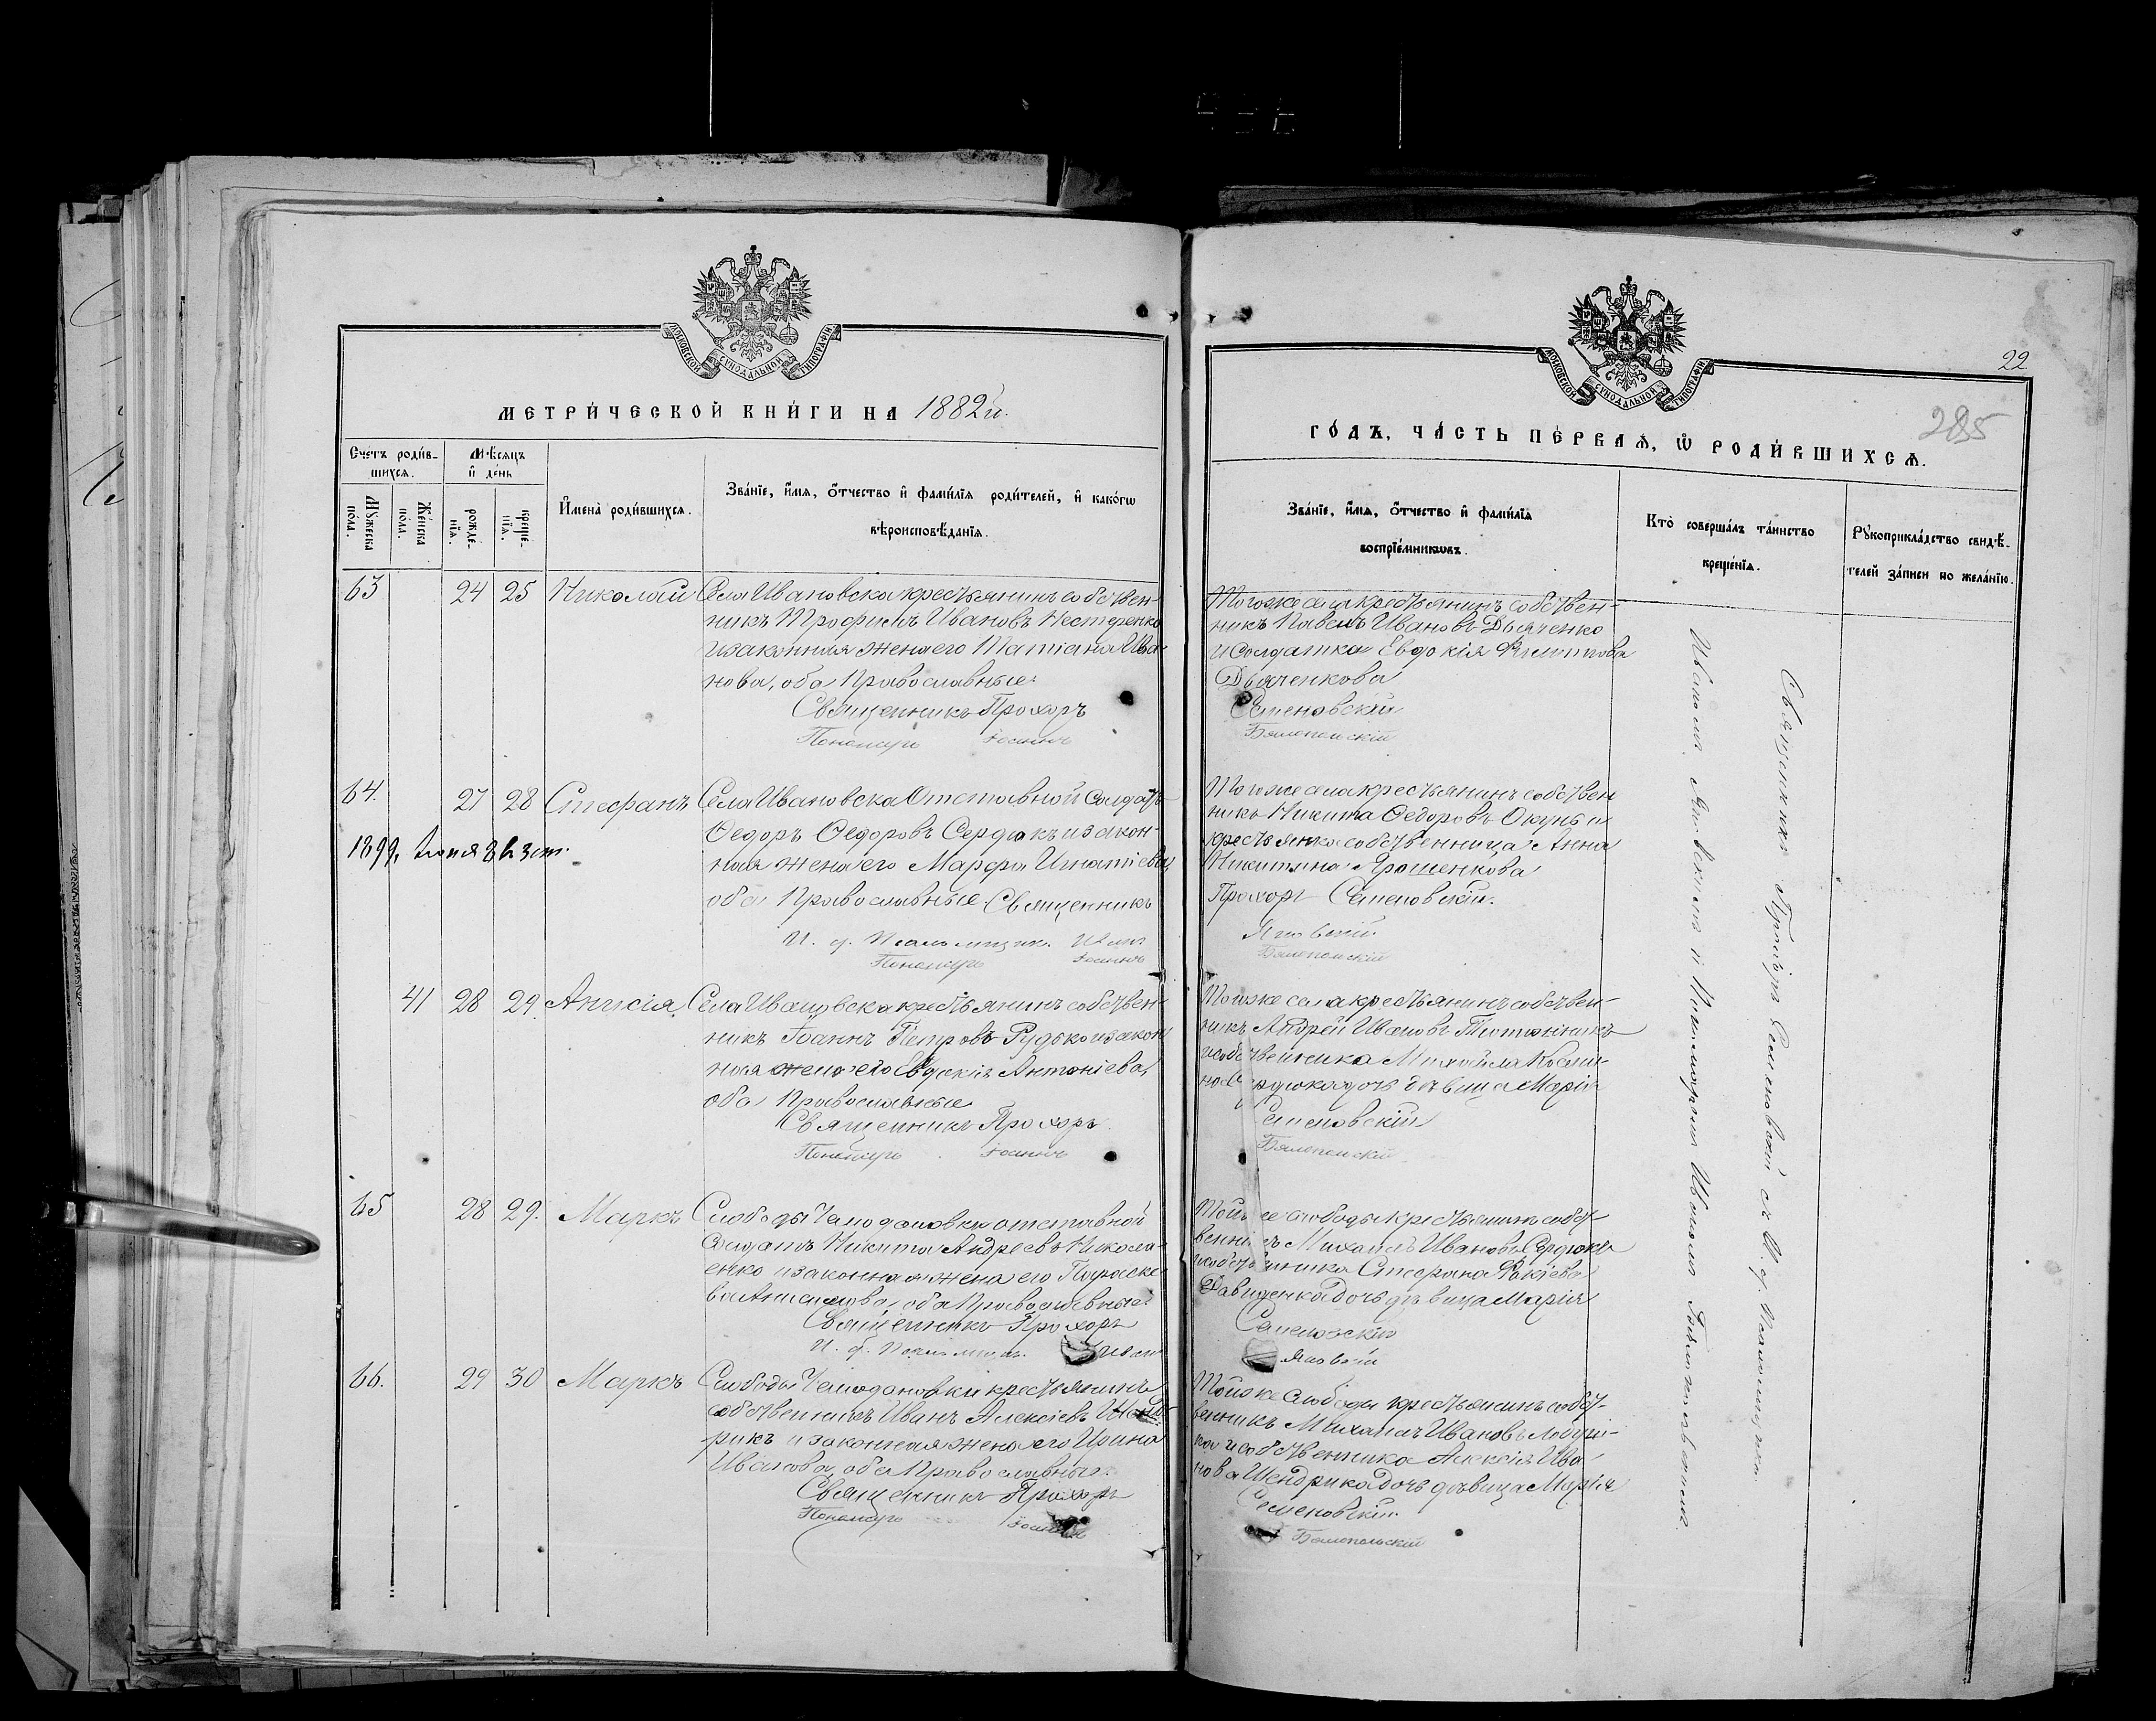 МОСКОВСКОЙ СУНОДАЛЬНОЙ ТИПОГРАФІИ
МЕТРИ́ЧЕСКОЙ КНИ́ГИ НА 1882 й.
Счетъ роди́в-
шихся.
Мѣсяцъ
и҆ де́нь
Мꙋжеска
по́ла.
Же́нска
по́ла.
рожде-
нїя.
креще-
нїя.
И҆мена̀ роди́вшихся.
Зва́нїе, и҆́мя, ѻ҆́тчество и҆ фами́лїя роди́телей, и҆ како́гѡ
вѣроисповѣ́данїя.
63 24 25 Николай Села Ивановска крестьянинъ собствен-
никъ Трофимъ Ивановъ Нестеренко
и законная жена его Татіана Ива-
нова, оба Православные.
Священникъ Прохоръ
Пономарь Іоаннъ
64. 27 28 Стефанъ Села Ивановска Отставной Солдатъ
Ѳедоръ Ѳедоровъ Сердюкъ и закон-
1899, Июня
ная жена его Марфа Игнатіева,
оба Православные Священникъ
И. д. Псаломщик. Иван
Пономарь Іоаннъ
41 28 29. Анисія. Села Ивановска крестьянинъ собствен-
никъ Іоаннъ Петровъ Рудько и закон
ная жена его Евдокія Антоніева,
оба Православные
Священникъ Прохоръ.
Пономарь Іоаннъ
65 28 29. Маркъ Слободы Чемодановки отставной
Солдатъ Никита Андреевъ Никола-
енко и законная жена его Параске
ва Анисимова, оба Православные.
Священникъ Прохоръ
И. д. Псаломщ. Иван
66. 29 30 Маркъ Слободы Чемодановки крестьянинъ
собственникъ Иванъ Алексіевъ
рикъ и законная жена его Ирина
Иванова, оба Православные.
Священникъ Прохоръ
Пономарь
МОСКОВСКОЙ СУНОДАЛЬНОЙ ТИПОГРАФІИ
22
285
ГО́ДЪ, ЧА́СТЬ ПЕ́РВАЯ, Ѡ҆ РОДИ́ВШИХСЯ.
Зва́нїе, и҆́мя, ѻ҆́тчество и҆ фами́лїя
воспрїе́мникѡвъ.
Кто̀ соверша́лъ та́инство
креще́нїя.
Рꙋкоприкла́дство свидѣ́-
телей за́писи по жела́нїю.
Тогоже села крестьянинъ собствен-
никъ Павелъ Ивановъ Дьяченко
и Солдатка Евдокія Филиппова
Дьяченкова
Семеновскій
Бялопольскій
Тогоже села крестьянинъ собствен
никъ Никита Ѳедоровъ Окунь и
крестьянка собственница Анна
Никитина Ярошенкова
Прохоръ Семеновскій.
Яновскій
Бялопольскій
Тогоже села крестьянинъ собствен-
никъ Андрей Ивановъ
и собственника Михаила
дочь дѣвица Марія
Семеновскій
Бялопольскій
Тойже слободы крестьянинъ собст-
венникъ Михаилъ Ивановъ Сердюкъ
и собственника Стефана
Давиденка Дочь дѣвица Марія
Семеновскій
Яновскій
Тойже слободы крестьянинъ собст-
венникъ Михаилъ Ивановъ
и собственника Алексія Ива
нова Шендрика Дочь дѣвица Марія
Семеновскій
Бялопольскій
Священникъ Прохоръ Семеновскій съ И. д. Псаломщика
Иваномъ Яновскимъ и Пономаремъ